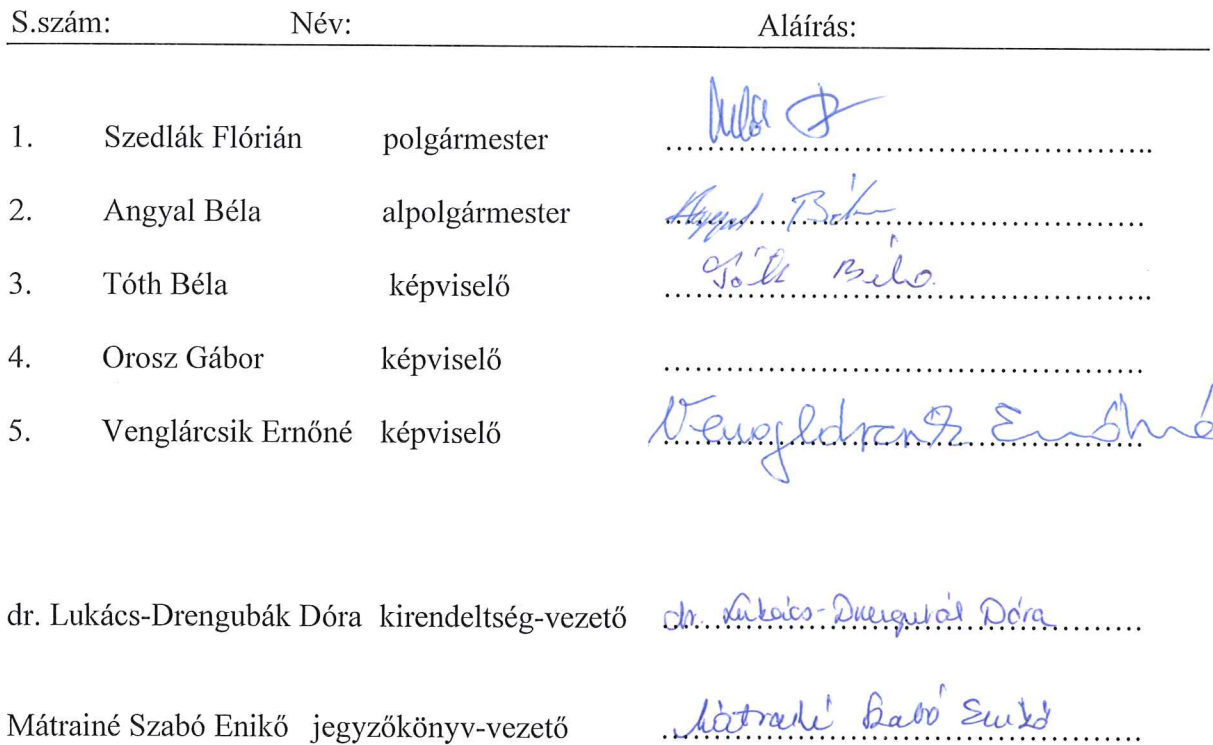 S.szám: Név: Aláírás:
1. Szedlák Flórián polgármester
2. Angyal Béla alpolgármester Angyal Béla
3. Tóth Béla képviselő Tóth Béla
4. Orosz Gábor képviselő ..............................................
5. Venglárcsik Ernőné képviselő Venglárcsik Ernőné
dr. Lukács-Drengubák Dóra kirendeltség-vezető dr. Lukács-Drengubák Dóra
Mátrainé Szabó Enikő jegyzőkönyv-vezető Mátrainé Szabó Enikő